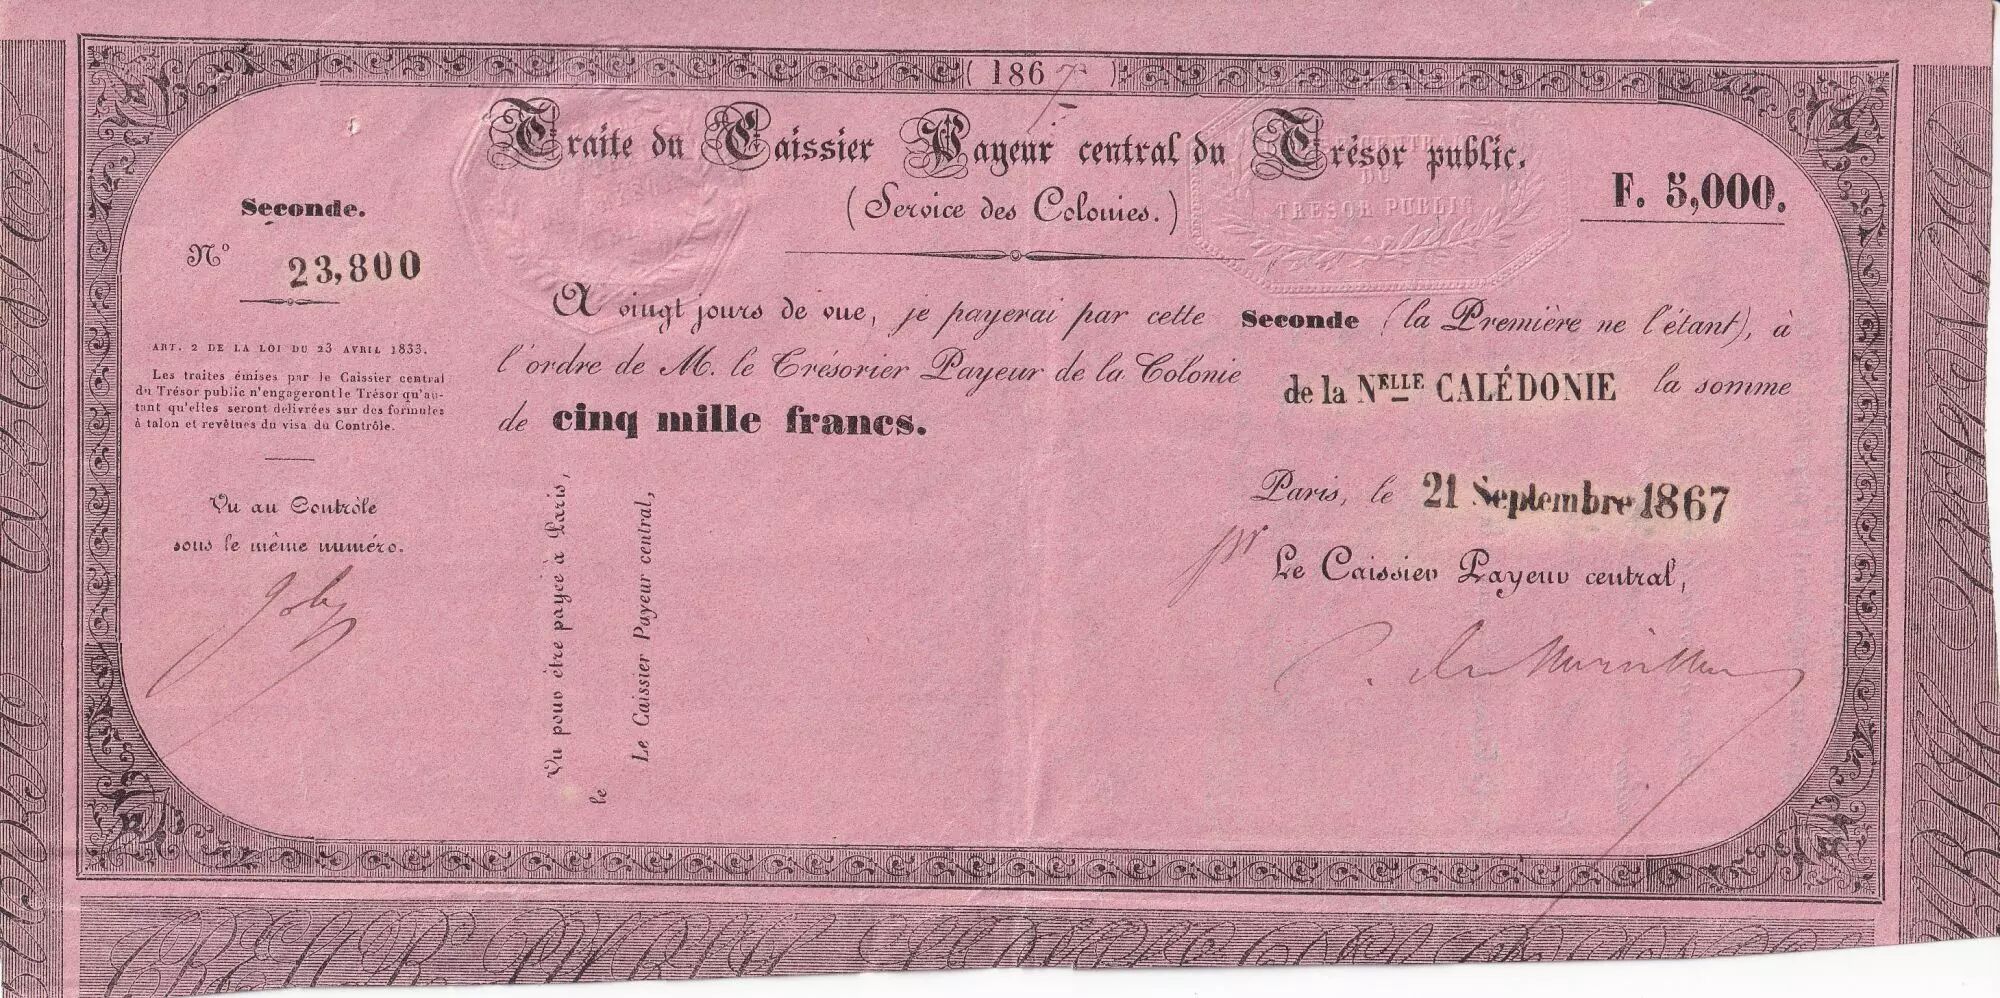 ( 1867 )
Traite du Caissier Payeur central du Trésor public.
(Service des Colonies.)
F. 5,000.
Seconde.
N° 23,800
ART. 2 DE LA LOI DU 23 AVRIL 1833.
Les traites émises par le Caissier central
du Trésor public n'engageront le Trésor qu'au-
tant qu'elles seront délivrées sur des formules
à talon et revêtues du visa du Contrôle.
Vu au Contrôle
sous le même numéro.
A vingt jours de vue, je payerai par cette Seconde (la Première ne l'étant), à
l'ordre de M. le Trésorier Payeur de la Colonie de la NELLE CALÉDONIE la somme
de cinq mille francs.
Paris, le 21 Septembre 1867
pr Le Caissier Payeur central,
Vu pour être payée à Paris,
le
Le Caissier Payeur central,
CENTRAL
DU
TRESOR PUBLIC